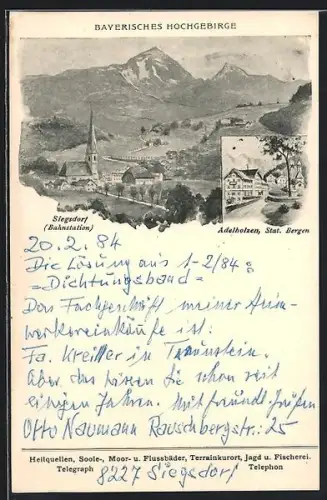 BAYERISCHES HOCHGEBIRGE
Siegsdorf
(Bahnstation)
Adelholzen, Stat. Bergen
20.2.84
Die Lösung aus 1-2/84:
=Dichtungsband=
Das Fachgeschäft meiner Heim-
werkereinkäufe ist:
Fa. Kreiller in Traunstein.
Aber das hören Sie schon seit
einigen Jahren. Mit freundl. Grüßen
Otto Naumann Rauschbergstr. 25
Heilquellen, Soole-, Moor- u. Flussbäder, Terrainkurort, Jagd u. Fischerei.
Telegraph 8227 Siegsdorf Telephon